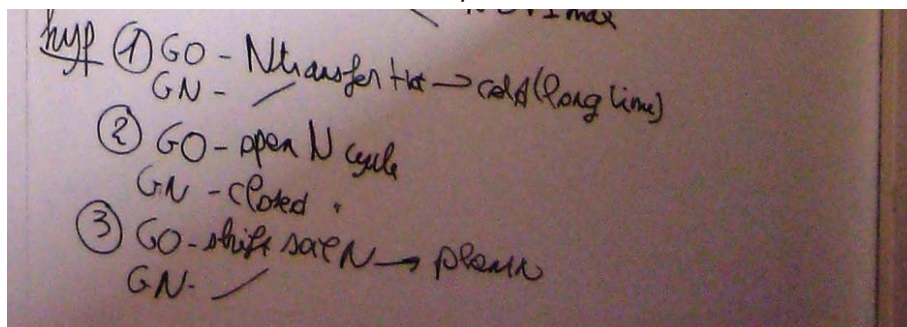 max
hyp ① GO - N transfer hot → cold (long time)
GN - /
② GO - open N cycle
GN - closed "
③ GO - shift soil N → plant N
GN - /